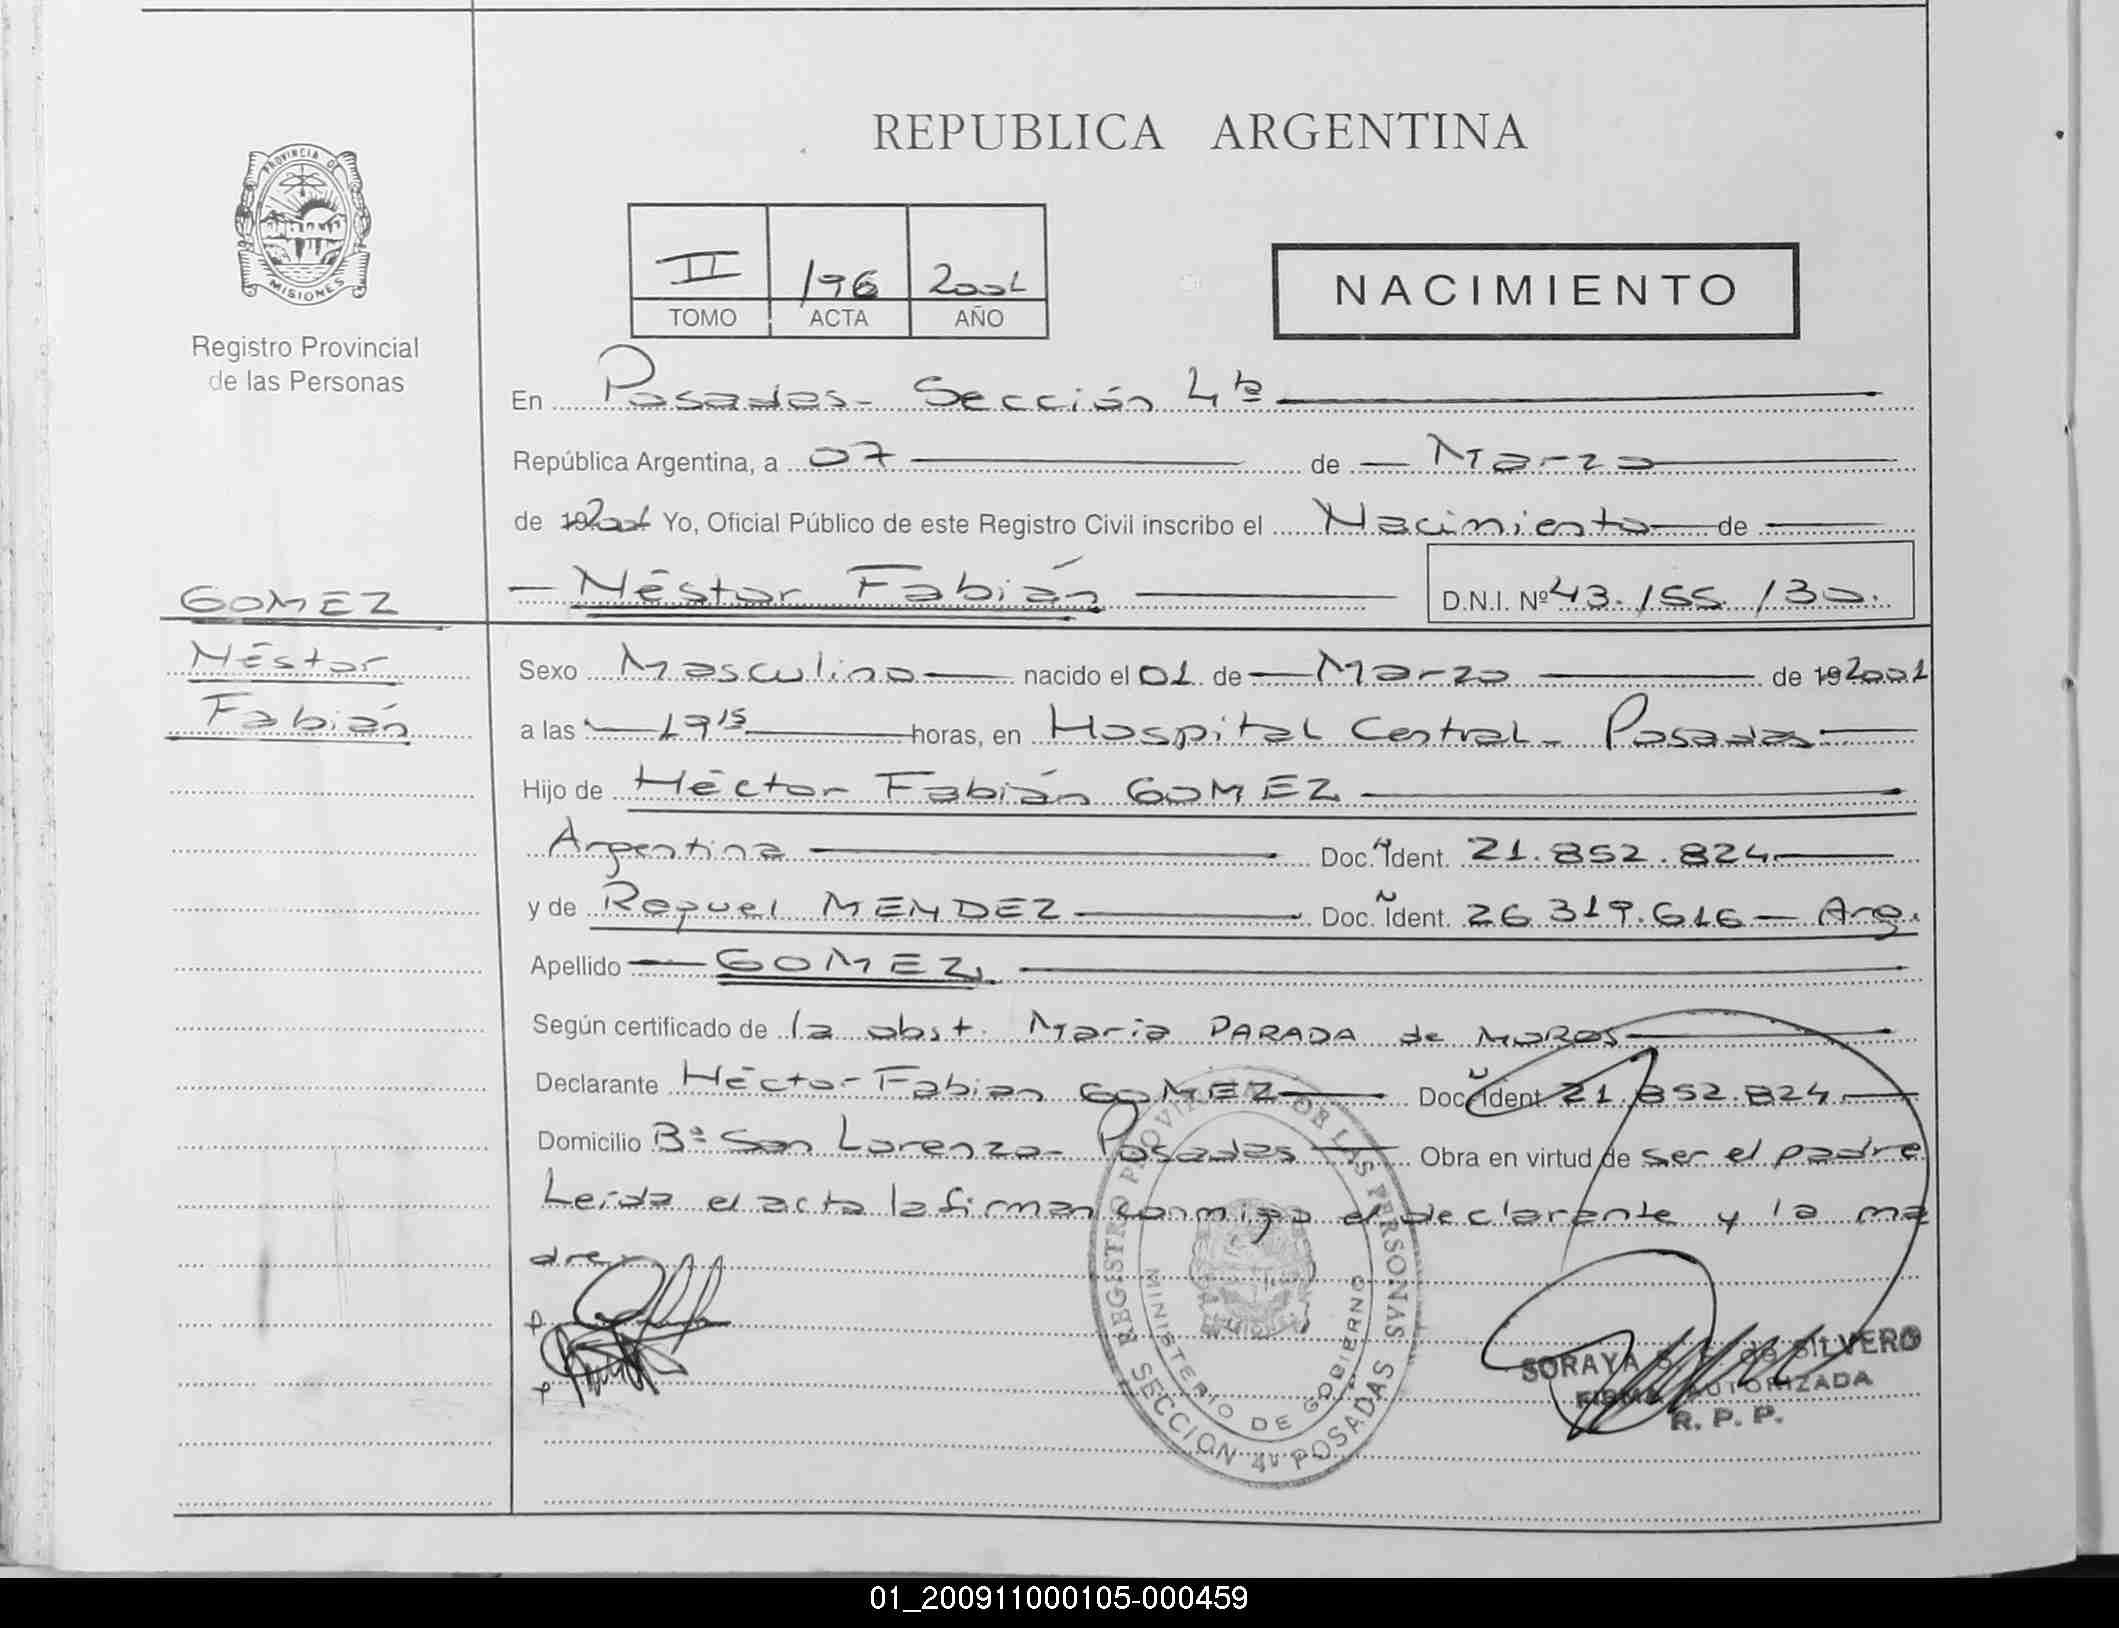 REPUBLICA ARGENTINA
PROVINCIA DE
MISIONES
Registro Provincial
de las Personas
II 196 2001
TOMO ACTA AÑO
NACIMIENTO
En Posadas - Sección 4ta
República Argentina, a 07 de Marzo
de 19 2001 Yo, Oficial Público de este Registro Civil inscribo el Nacimiento de
Néstor Fabián D.N.I. Nº 43.155.130.
GOMEZ
Néstor
Fabián
Sexo Masculino nacido el 01 de Marzo de 19 2001
a las 19 15 horas, en Hospital Central - Posadas
Hijo de Héctor Fabián GOMEZ
Argentina Doc. Ident. 21.852.824
y de Raquel MENDEZ Doc. Ident. 26.319.616 - Arg.
Apellido GOMEZ
Según certificado de la obst. Maria PARADA de MOROS
Declarante Héctor Fabian GOMEZ Doc. Ident. 21.852.824
Domicilio Bº San Lorenzo - Posadas Obra en virtud de ser el padre
Leida el acta la firman conmigo el declarante y la ma
dre
REGISTRO PROVINCIAL DE LAS PERSONAS
MINISTERIO DE GOBIERNO
SECCION 4ta POSADAS
SORAYA de SILVERO
FIRMA AUTORIZADA
R. P. P.
01_200911000105-000459